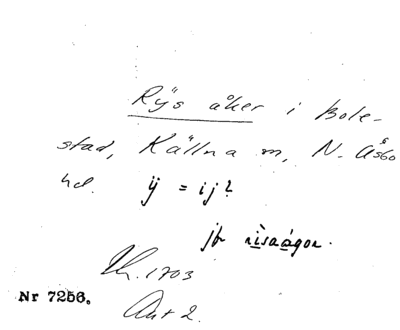 Rÿs åker i Bole-
stad, Källna m, N. Åsbo
hd. ÿ = ij?
jfr risaågor.
Lh. 1703
Nr 7256.
Ant 2.